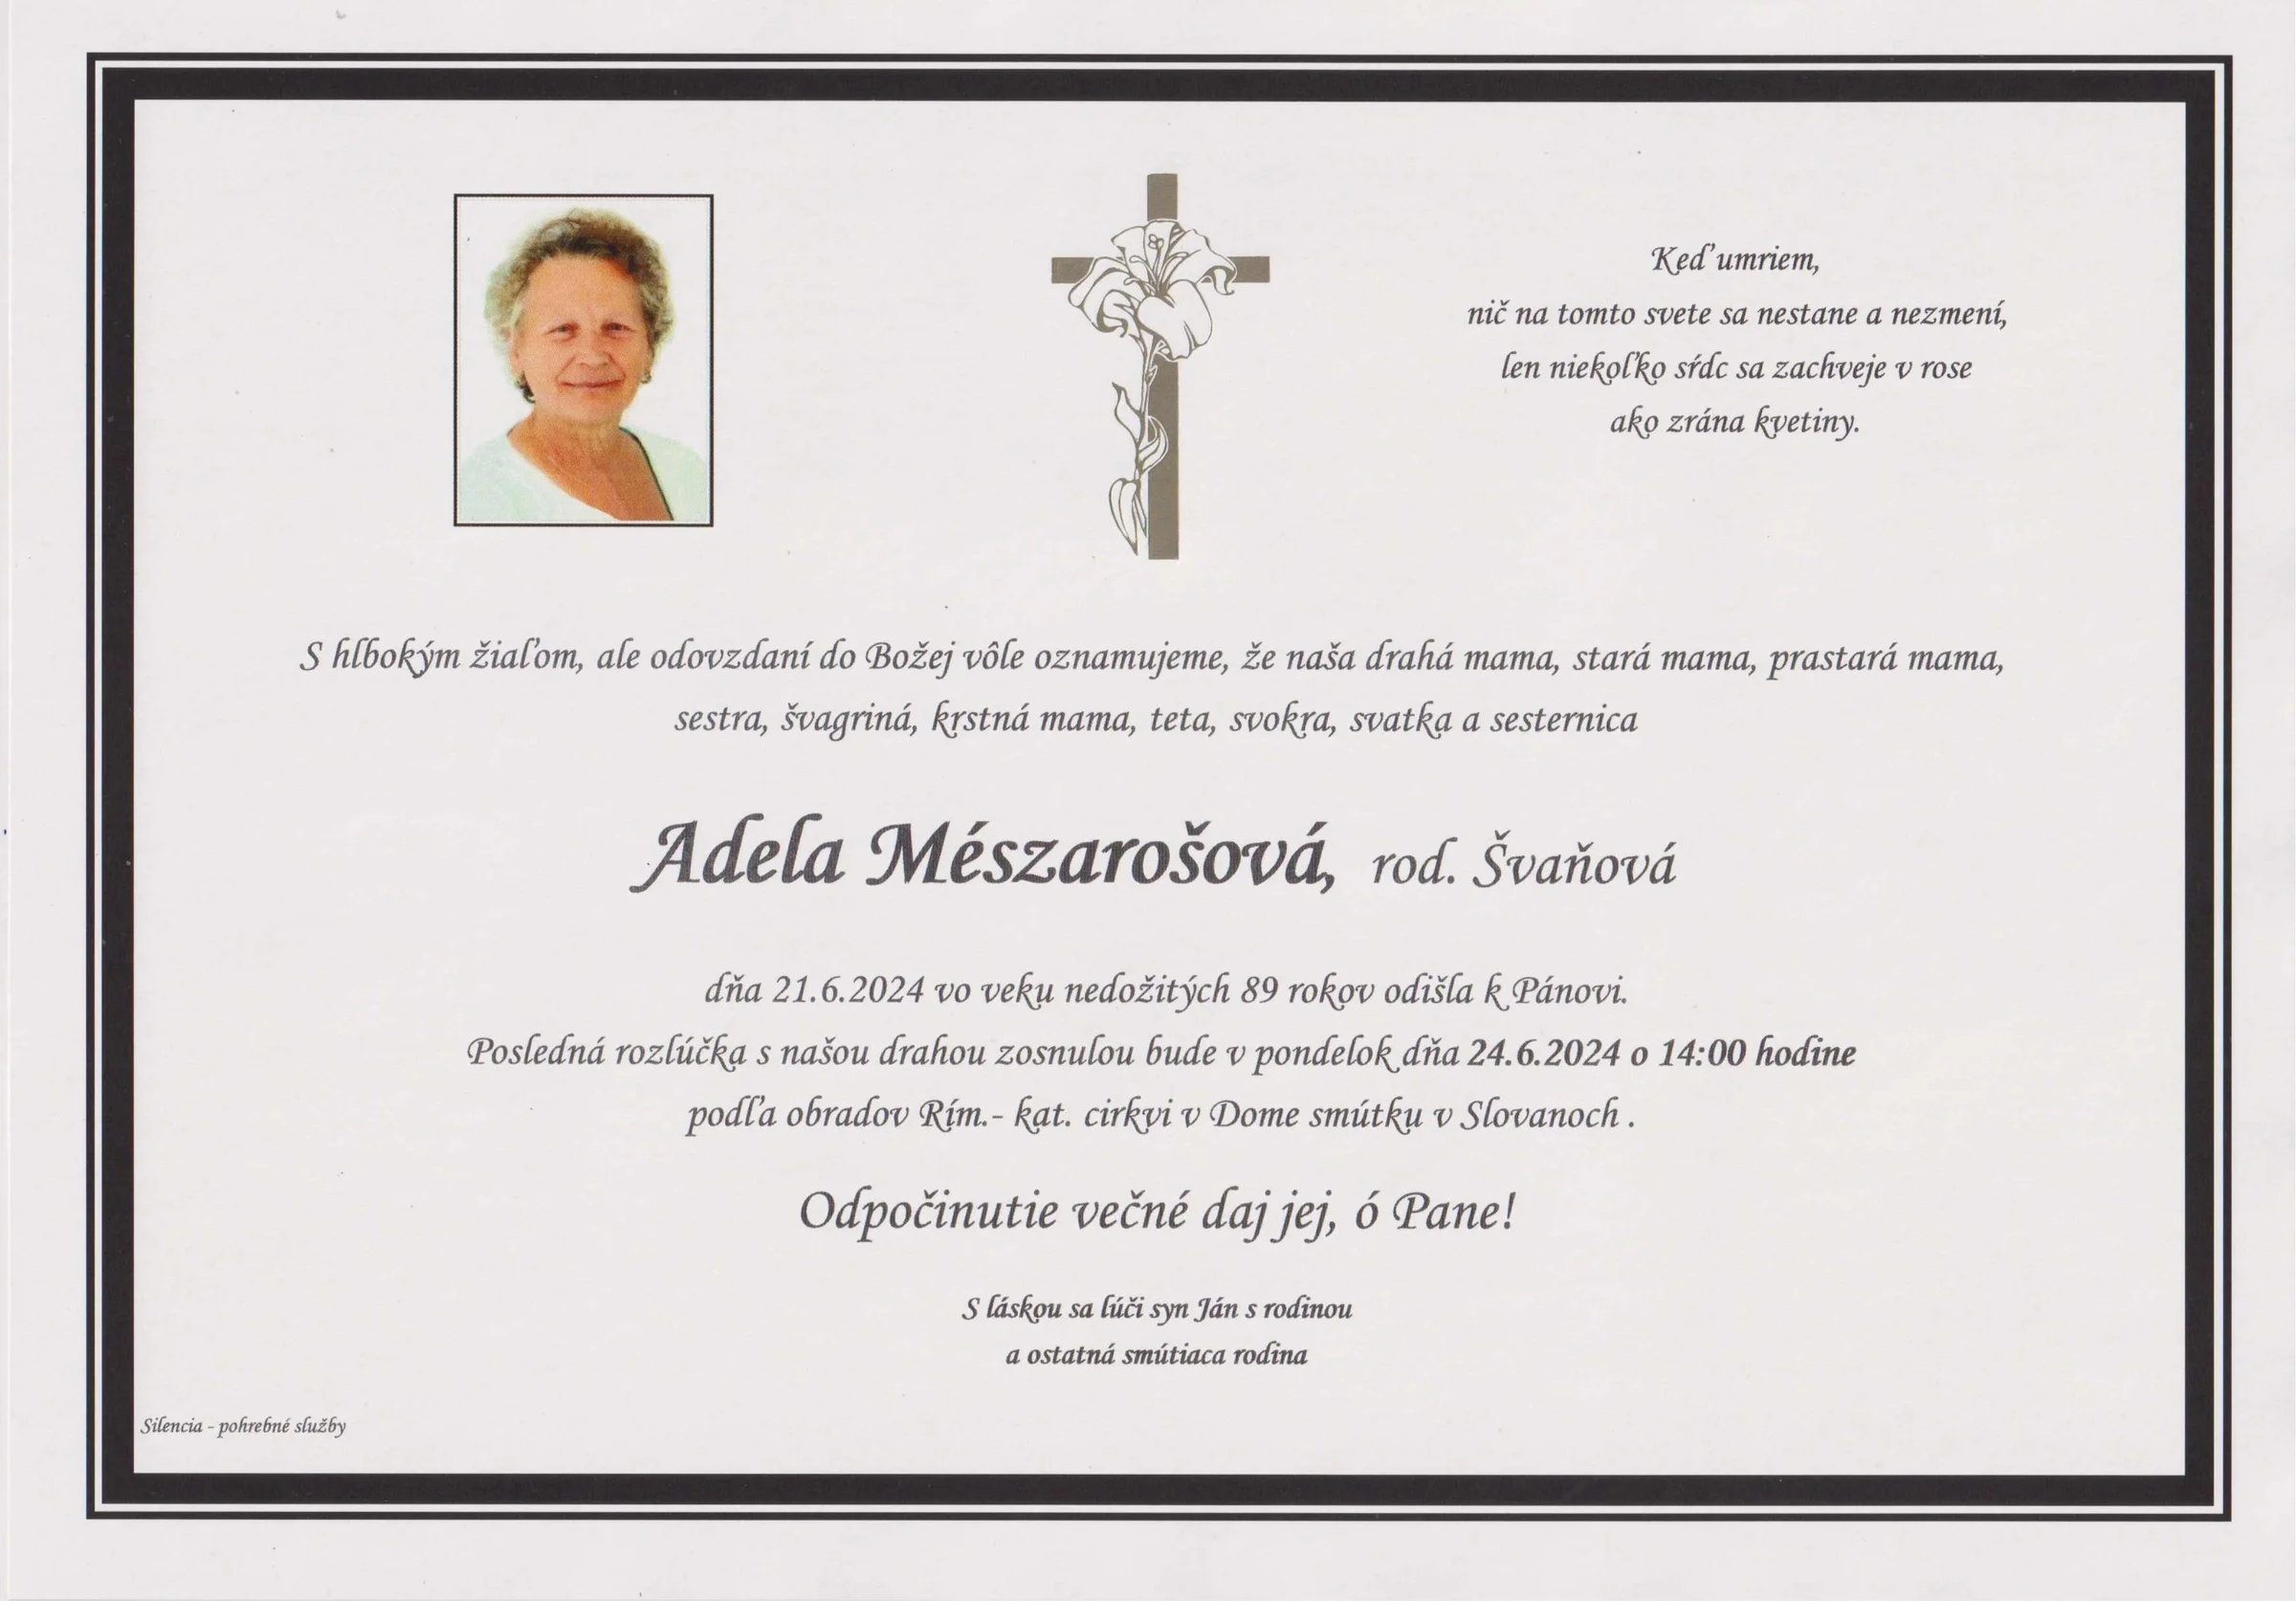 Keď umriem,
nič na tomto svete sa nestane a nezmení,
len niekoľko sŕdc sa zachveje v rose
ako zrána kvetiny.
S hlbokým žiaľom, ale odovzdaní do Božej vôle oznamujeme, že naša drahá mama, stará mama, prastará mama,
sestra, švagriná, krstná mama, teta, svokra, svatka a sesternica
Adela Mészarošová, rod. Švaňová
dňa 21.6.2024 vo veku nedožitých 89 rokov odišla k Pánovi.
Posledná rozlúčka s našou drahou zosnulou bude v pondelok dňa 24.6.2024 o 14:00 hodine
podľa obradov Rím.- kat. cirkvi v Dome smútku v Slovanoch .
Odpočinutie večné daj jej, ó Pane!
S láskou sa lúči syn Ján s rodinou
a ostatná smútiaca rodina
Silencia - pohrebné služby